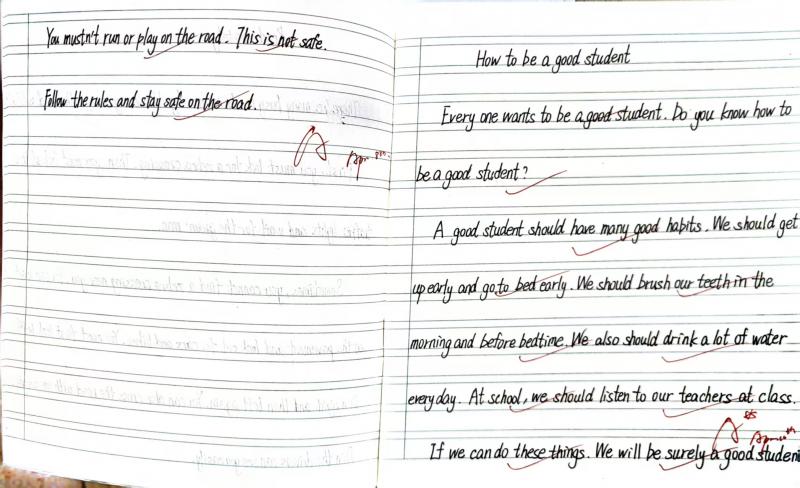 You mustn't run or play on the road. This is not safe.
Follow the rules and stay safe on the road.
A
How to be a good student
Every one wants to be a good student. Do you know how to
be a good student?
A good student should have many good habits. We should get
up early and go to bed early. We should brush our teeth in the
morning and before bedtime. We also should drink a lot of water
everyday. At school, we should listen to our teachers at class.
A
If we can do these things. We will be surely a good student